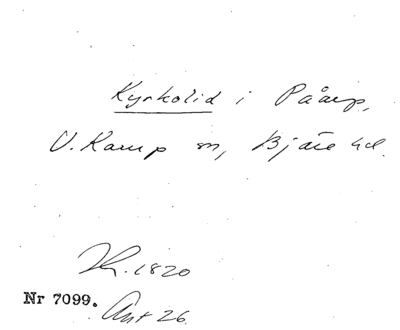 Kyrkolid i Påarp,
V. Karup sn, Bjäre hd.
Kr. 1820
Nr 7099.
Ant 26.